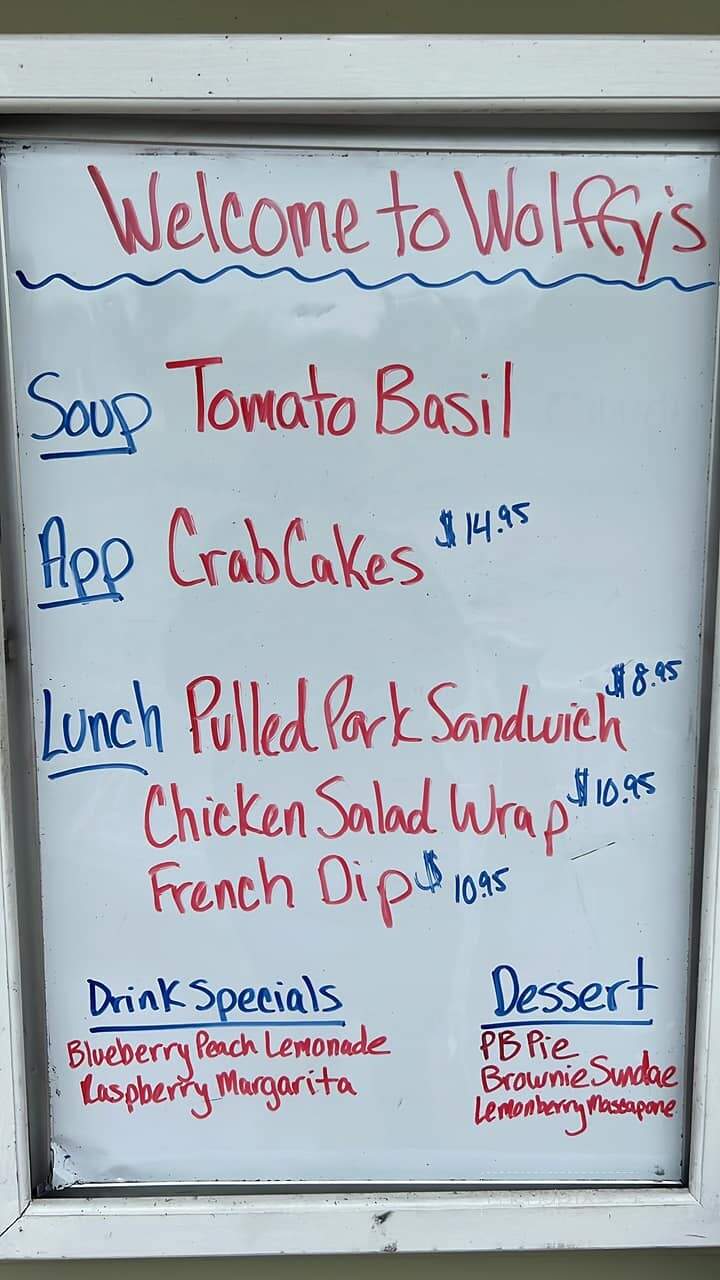 Welcome to Wolffy's
Soup Tomato Basil
App Crab Cakes $14.95
Lunch Pulled Pork Sandwich $8.95
Chicken Salad Wrap $10.95
French Dip $10.95
Drink Specials
Blueberry Peach Lemonade
Raspberry Margarita
Dessert
PB Pie
Brownie Sundae
Lemonberry Mascapone